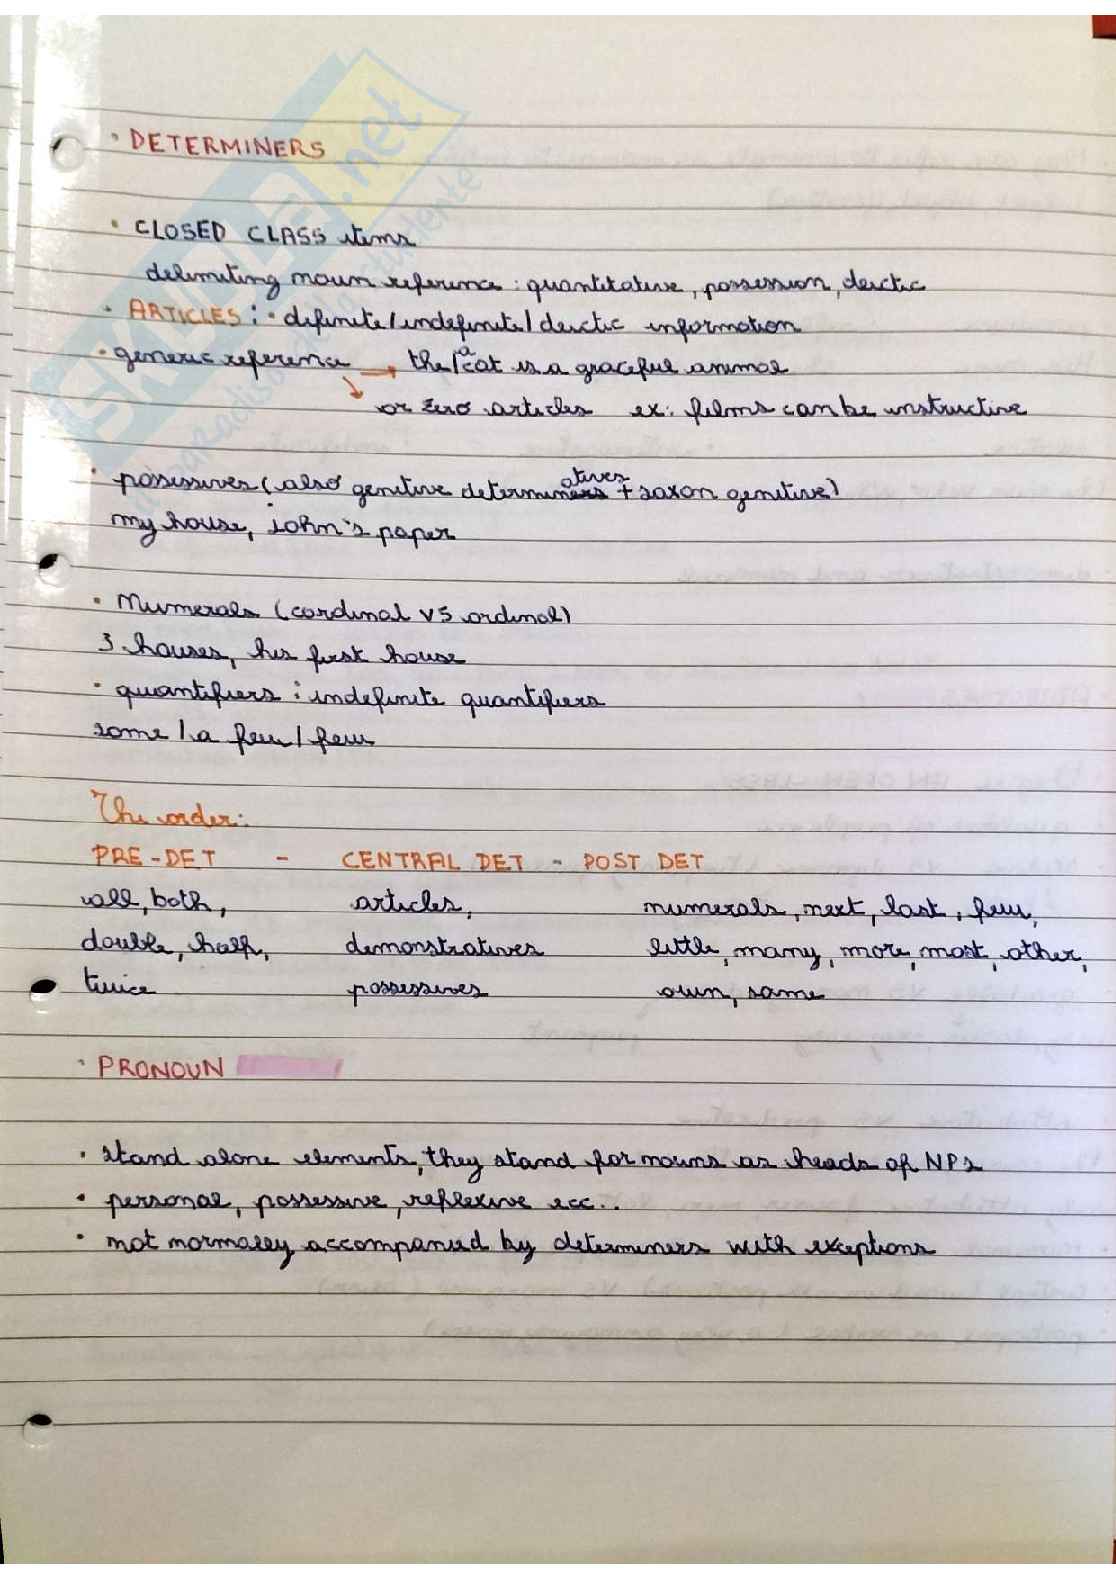 SKUOLA.net
il paradiso dello studente
• DETERMINERS
• CLOSED CLASS items
delimiting noun reference : quantitative, possession, deictic
• ARTICLES : • definite / indefinite / deictic information
• generic reference → the / a cat is a graceful animal
↘ or zero articles ex: films can be instructive
• possessives (also genitive determinatives + saxon genitive)
my house, john's paper
• Numerals (cardinal VS ordinal)
3 houses, his first house
• quantifiers : indefinite quantifiers
some / a few / few
The order:
PRE-DET - CENTRAL DET - POST DET
all, both, articles, numerals, next, last, few,
double, half, demonstratives little, many, more, most, other,
twice possessives own, same
• PRONOUN
• stand alone elements, they stand for nouns as heads of NPs
• personal, possessive, reflexive ecc..
• not normally accompanied by determiners with exceptions